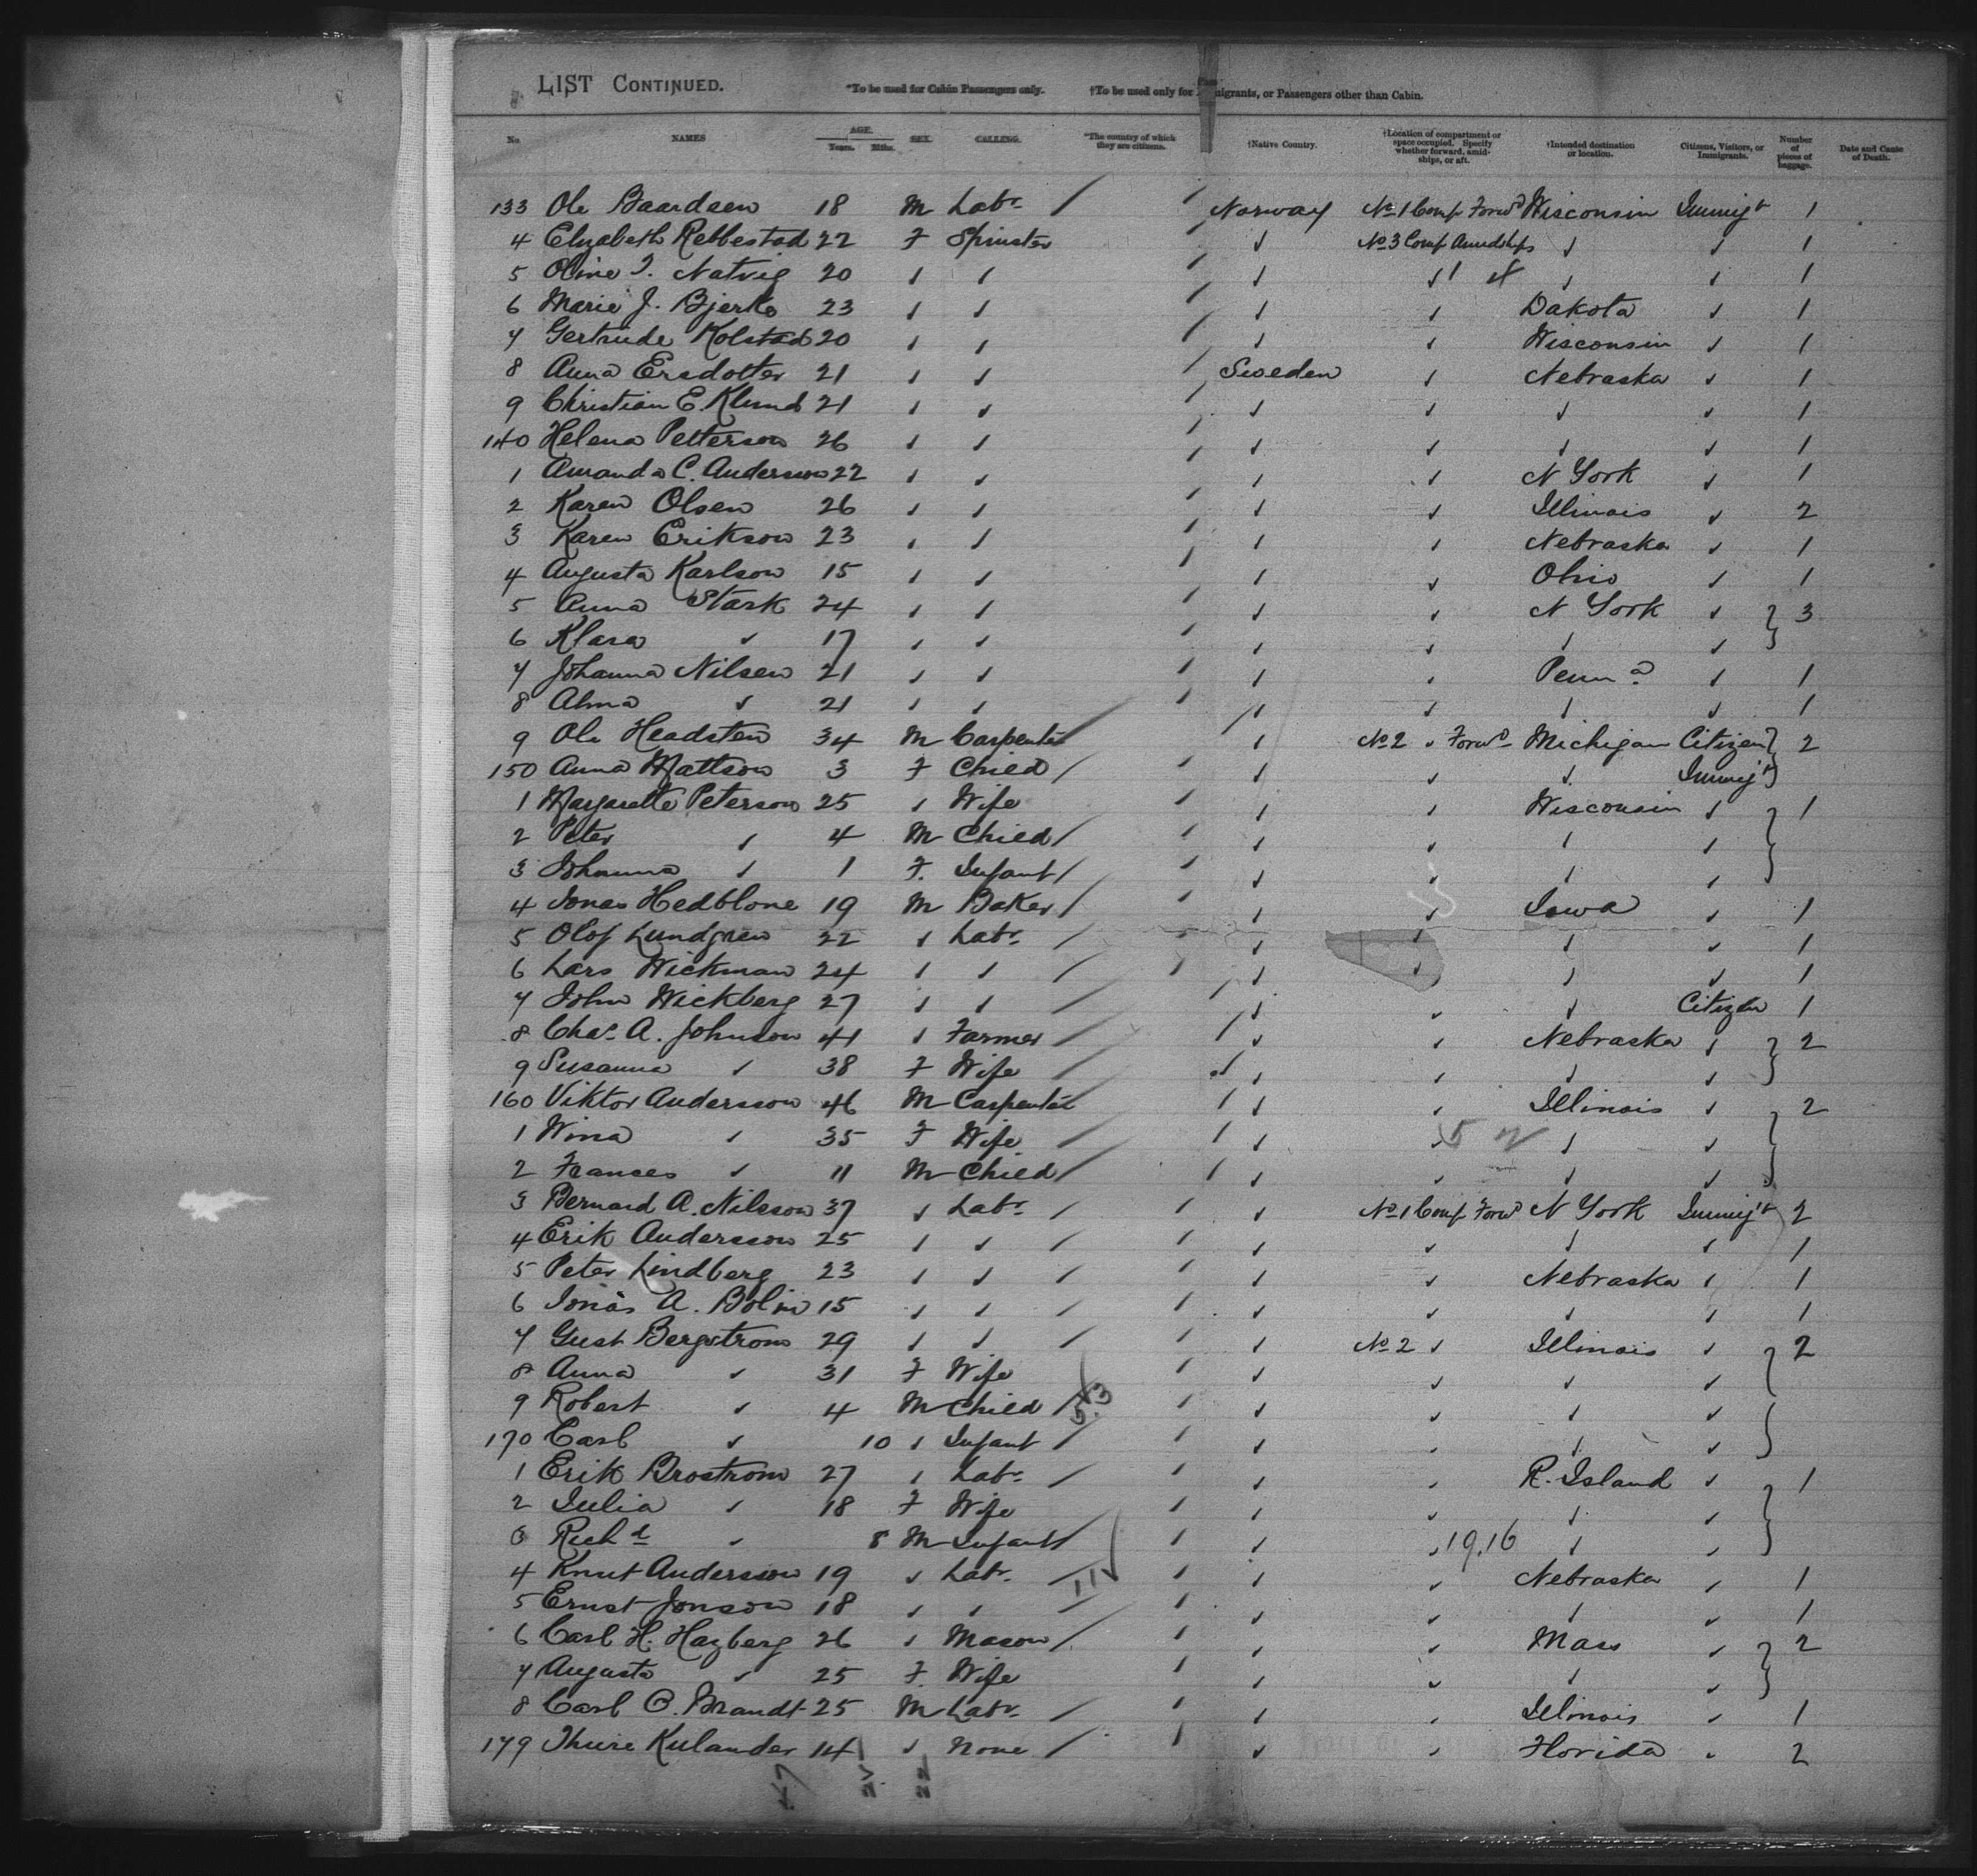 LIST CONTINUED. *To be used for Cabin Passengers only. †To be used only for Immigrants, or Passengers other than Cabin.
No NAMES AGE. Years. Mths. SEX. CALLING. *The country of which they are citizens. †Native Country. †Location of compartment or space occupied. Specify whether forward, amidships, or aft. †Intended destination or location. Citizens, Visitors, or Immigrants. Number of pieces of baggage. Date and Cause of Death.
133 Ole Baardsen 18 M Labr Norway No 1 Comp Forwd Wisconsin Immigt 1
4 Elizabeth Rebbestad 22 F Spinster ✓ No 3 Comp Amidships ✓ ✓ 1
5 Oline T. Natvig 20 ✓ ✓ ✓ ✓ ✓ ✓ 1
6 Marie J. Bjerke 23 ✓ ✓ ✓ ✓ Dakota ✓ 1
7 Gertrude Kolstad 20 ✓ ✓ ✓ ✓ Wisconsin ✓ 1
8 Anna Ersdotter 21 ✓ ✓ Sweden ✓ Nebraska ✓ 1
9 Christian E. Klund 21 ✓ ✓ ✓ ✓ ✓ ✓ 1
140 Helena Petterson 26 ✓ ✓ ✓ ✓ ✓ ✓ 1
1 Amanda C. Anderson 22 ✓ ✓ ✓ ✓ N York ✓ 1
2 Karen Olsen 26 ✓ ✓ ✓ ✓ Illinois ✓ 2
3 Karen Erikson 23 ✓ ✓ ✓ ✓ Nebraska ✓ 1
4 Augusta Karlson 15 ✓ ✓ ✓ ✓ Ohio ✓ 1
5 Anna Stark 24 ✓ ✓ ✓ ✓ N York ✓ } 3
6 Klara ✓ 17 ✓ ✓ ✓ ✓ ✓ ✓
7 Johanna Nilsen 21 ✓ ✓ ✓ ✓ Penna ✓ 1
8 Alma ✓ 21 ✓ ✓ ✓ ✓ ✓ ✓ 1
9 Ole Headsten 34 M Carpenter ✓ No 2 ✓ Forwd Michigan Citizen } 2
150 Anna Mattson 3 F Child ✓ ✓ ✓ Immigt
1 Margarette Peterson 25 ✓ Wife ✓ ✓ Wisconsin ✓ } 1
2 Peter ✓ 4 M Child ✓ ✓ ✓ ✓
3 Johanna ✓ 1 F. Infant ✓ ✓ ✓ ✓
4 Jonas Hedblone 19 M Baker ✓ ✓ Iowa ✓ 1
5 Olof Lundgren 22 ✓ Labr ✓ ✓ ✓ ✓ 1
6 Lars Wickman 24 ✓ ✓ ✓ ✓ ✓ ✓ 1
7 John Wickberg 27 ✓ ✓ ✓ ✓ ✓ Citizen 1
8 Chas A. Johnson 41 ✓ Farmer ✓ ✓ Nebraska ✓ } 2
9 Susanna ✓ 38 F Wife ✓ ✓ ✓ ✓
160 Viktor Andersson 46 M Carpenter ✓ ✓ Illinois ✓ } 2
1 Wina ✓ 35 F Wife ✓ ✓ ✓ ✓
2 Frances ✓ 11 M Child ✓ ✓ ✓ ✓
3 Bernard A. Nilsson 37 ✓ Labr ✓ No 1 Comp Forwd N York Immigt 2
4 Erik Andersson 25 ✓ ✓ ✓ ✓ ✓ ✓ 1
5 Peter Lindberg 23 ✓ ✓ ✓ ✓ Nebraska ✓ 1
6 Jonas A. Bolin 15 ✓ ✓ ✓ ✓ ✓ ✓ 1
7 Gust Bergstrom 29 ✓ ✓ ✓ No 2 ✓ Illinois ✓ } 2
8 Anna ✓ 31 F Wife ✓ ✓ ✓ ✓
9 Robert ✓ 4 M Child 53 ✓ ✓ ✓ ✓
170 Carl ✓ 10 ✓ Infant ✓ ✓ ✓ ✓
1 Erik Brostrom 27 ✓ Labr ✓ ✓ R. Island ✓ } 1
2 Julia ✓ 18 F Wife ✓ ✓ ✓ ✓
3 Richd ✓ 8 M Infant ✓ ✓ 19.16 ✓ ✓
4 Knut Andersson 19 ✓ Labr ✓ ✓ Nebraska ✓ 1
5 Ernst Jonson 18 ✓ ✓ ✓ ✓ ✓ ✓ 1
6 Carl H. Hagberg 26 ✓ Mason ✓ ✓ Mass ✓ } 2
7 Augusta ✓ 25 F. Wife ✓ ✓ ✓ ✓
8 Carl O. Brandt 25 M Labr ✓ ✓ Illinois ✓ 1
179 Thure Kulander 14 ✓ None ✓ ✓ Florida ✓ 2
22